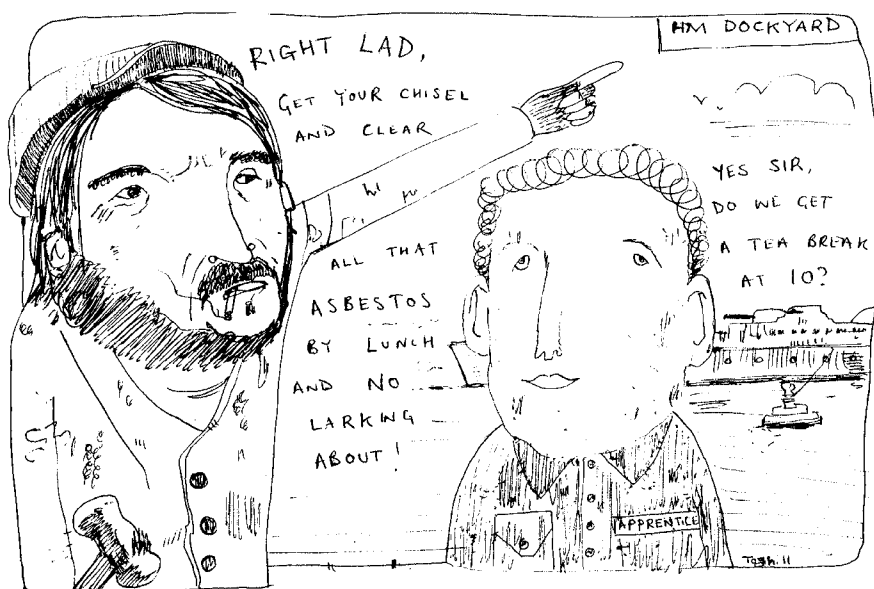 HM DOCKYARD
RIGHT LAD,
GET YOUR CHISEL
AND CLEAR
ALL THAT
ASBESTOS
BY LUNCH
AND NO
LARKING
ABOUT!
YES SIR,
DO WE GET
A TEA BREAK
AT 10?
APPRENTICE
Tosh.11